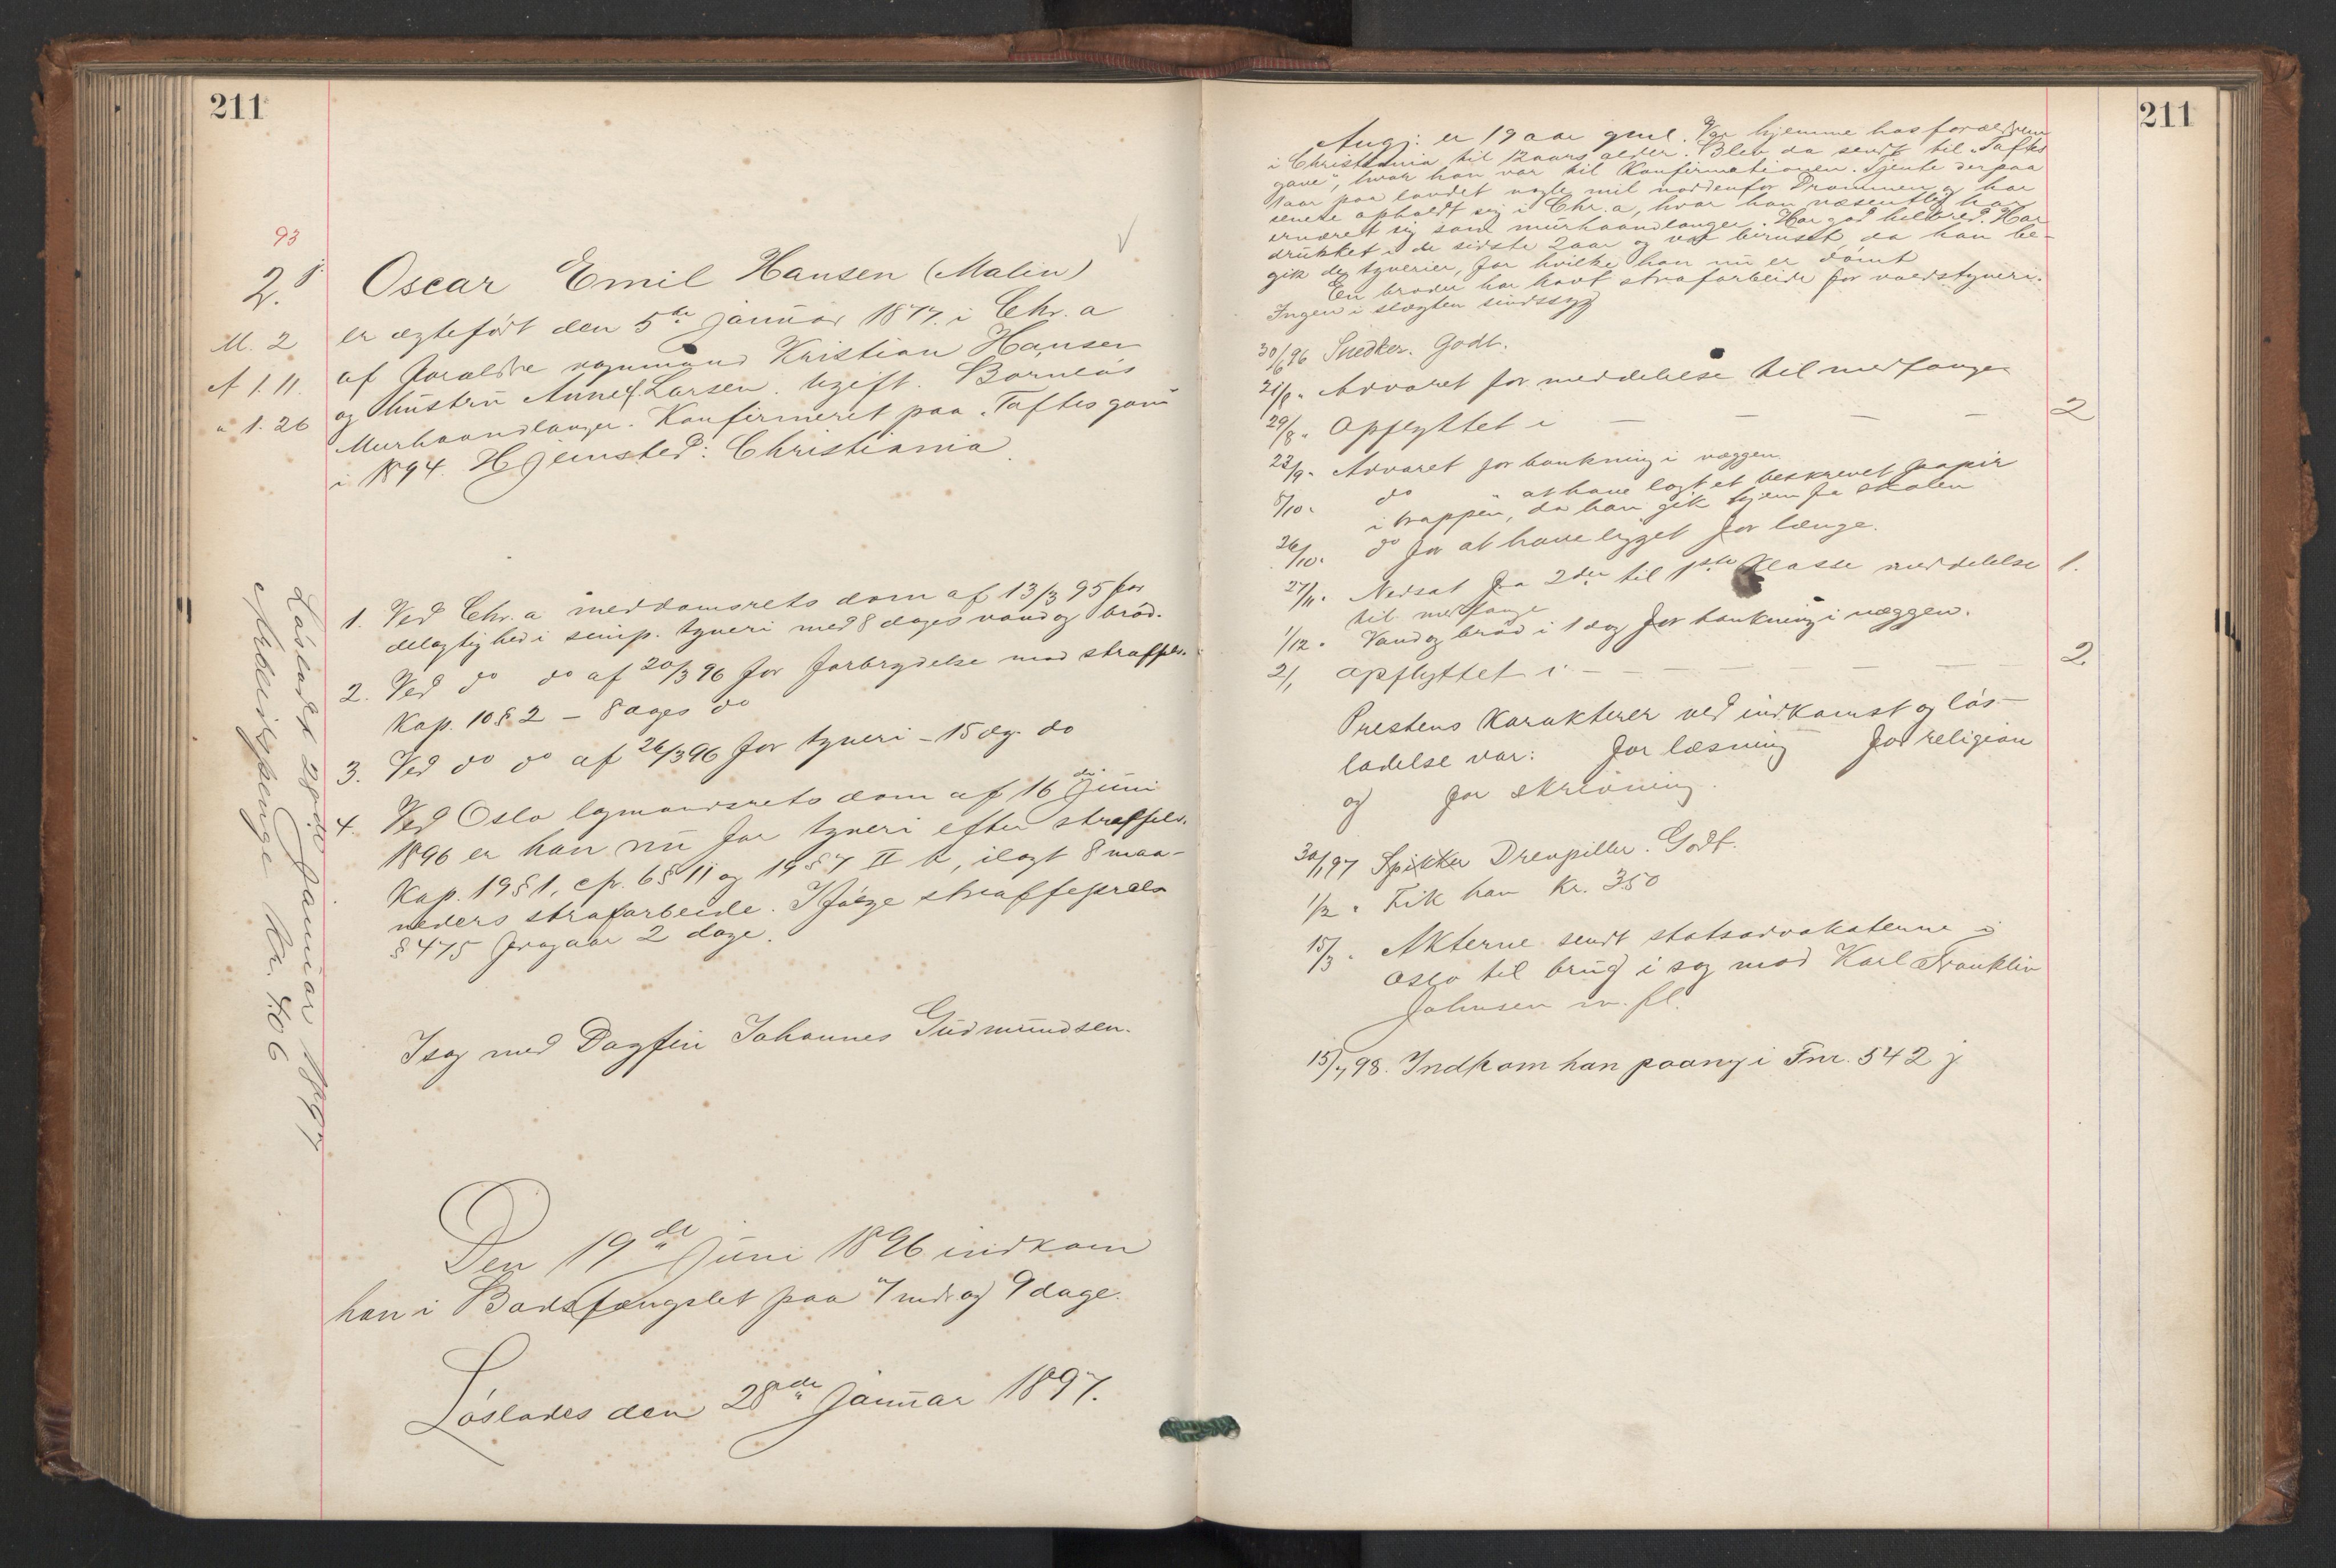 211
93
2.
M. 2
A 1. 11.
" 1. 26
Oscar Emil Hansen (Malin)
er ægtefödt den 5te januar 1877. i Chr.a
af forældre vognmand Kristian Hansen
og hustru Anne Larsen. Ugift. Barnlös
Murhaandlanger. Konfirmeret paa "Taftes gave
i 1894. Hjemsted: Christiania.
1. Ved Chr.a meddomsrets dom af 13/3 95 for
delagtighed i simp. tyveri med 8 dages vand og bröd.
2. Ved do do af 20/3 96 for forbrydelse mod straffelr.
Kap. 10 § 2 – 8 dages do
3. Ved do do af 26/3 96 for tyveri – 15 dg. do
4. Ved Oslo lagmandsrets dom af 16de Juni
1896 er han nu for tyveri efter straffelr.
Kap. 19 § 1, cfr. 6 § 11 og 19 § 7 II b, ilagt 8 maa-
neders strafarbeide. Ifölge straffeprcls
§ 475 fragaar 2 dage.
I sag med Dagfin Johannes Gudmundsen.
Den 19de Juni 1896 indkom
han i Bodsfængslet paa 7 mdr og 9 dage.
Löslades den 28de Januar 1897.
Lösladt 28de Januar 1897
Arbeidspenge Kr. 4.06
211
Aug: er 19 aar gml. Var hjemme hos forældrene
i Christiania til 12 aars alder. Blev da sendt til "Taftes
gave", hvor han var til Konfirmationen. Tjente derpaa
1 aar paa landet nogle mil nordenfor Drammen og har
senere opholdt sig i Chr.a, hvor han væsentlig har
ernæret sig som murhaandlanger. Har god helbred. Har
drukket i de sidste 2 aar og var beruset, da han be-
gik de tyverier, for hvilke han nu er dömt
En broder har havt strafarbeide for voldstyveri.
Ingen i slægten sindssyg
30/6 96 Snedker. Godt.
21/8 " Advaret for meddelelse til medfange
29/8 " Opflyttet i — — — — 2
22/9 " Advaret for bankning i væggen.
8/10 " do " at have lagt et beskrevet papir
i trappen, da han gik hjem fra skolen
26/10 " do for at have ligget for længe.
27/11 " Nedsat fra 2den til 1ste Klasse meddelelse 1.
til medfange
1/12 " Vand og bröd i 1 dag for bankning i væggen.
2/1 opflyttet i — — — — — — 2.
Prestens Karakterer ved indkomst og lös-
ladelse var: for læsning for religion
og for skrivning.
30/1 97 Spikker Drevpiller. Godt.
1/2 " Fik han Kr. 350
15/3 " Akterne sendt statsadvokaterne i
Oslo til brug i sag mod Karl Franklin
Johnsen m. fl.
15/7 98. Indkom han paany i Fnr. 542 j